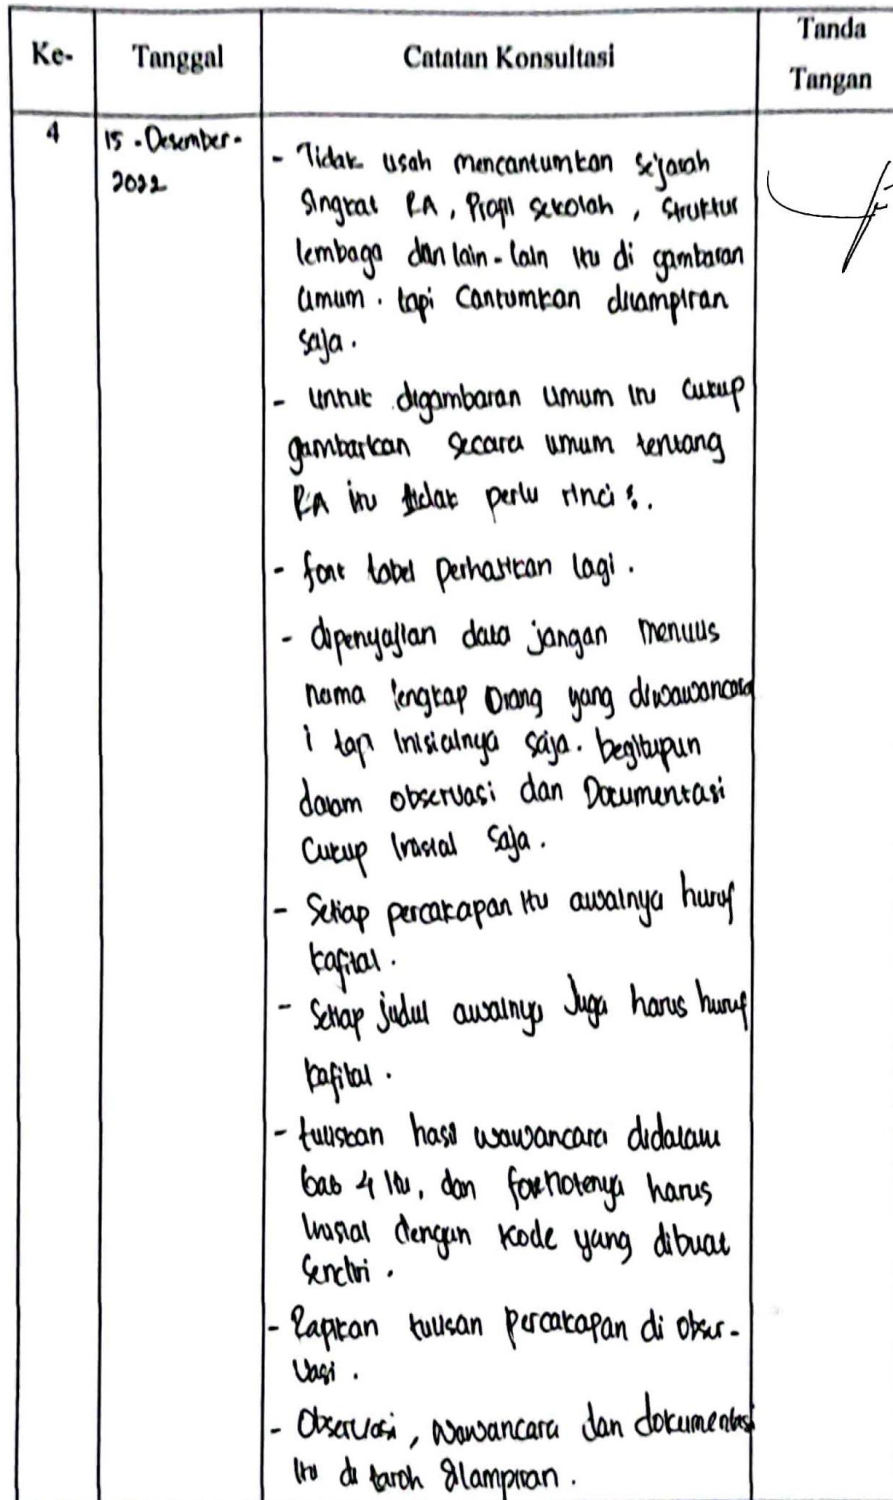 Ke-
Tanggal
Catatan Konsultasi
Tanda
Tangan
4
15 - Desember -
2022
- Tidak usah mencantumkan sejarah
singkat RA, Profil sekolah, struktur
lembaga dan lain-lain itu di gambaran
umum. tapi Cantumkan dilampiran
saja.
- untuk digambaran umum itu cukup
gambarkan secara umum tentang
RA itu tidak perlu rinci.
- font tabel perhatikan lagi.
- dipenyajian data jangan menulis
nama lengkap orang yang diwawancara
i tapi inisialnya saja. begitupun
dalam observasi dan Documentasi
Cukup Inisial Saja.
- Setiap percakapan itu awalnya huruf
kafital.
- Setiap judul awalnya Juga harus huruf
kafital.
- tuliskan hasil wawancara didalam
bab 4 itu, dan footnotenya harus
Inisial dengan kode yang dibuat
Sendiri.
- Rapikan tulisan percakapan di obser-
vasi.
- Observasi, wawancara dan dokumentasi
itu di taroh dilampiran.